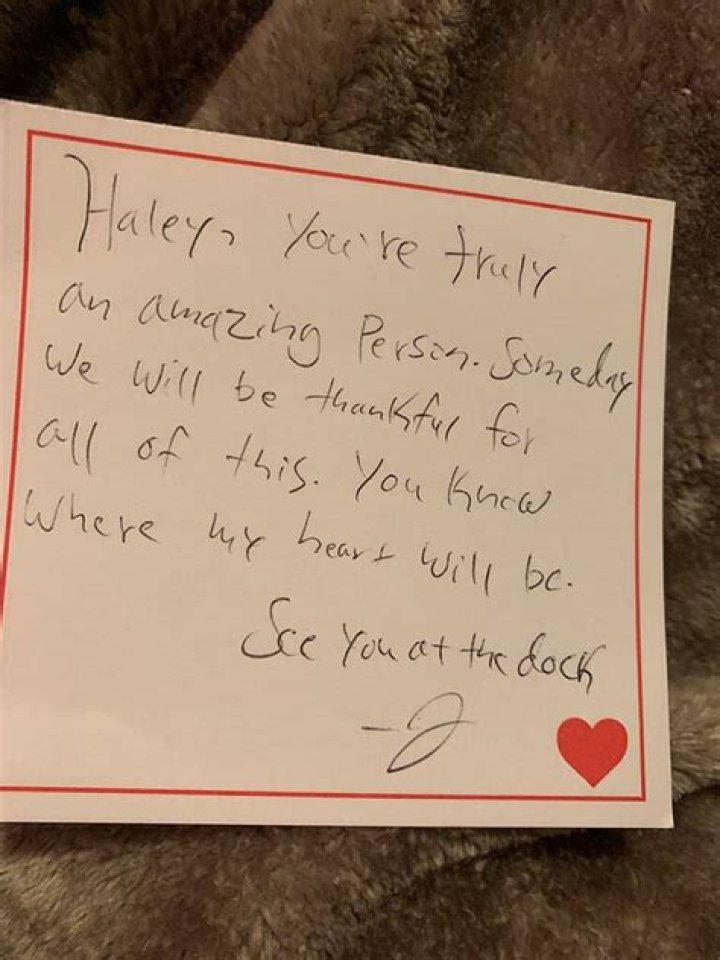 Haley, You're truly
an amazing Person. Someday
We Will be thankful for
all of this. You Know
Where my heart Will be.
See You at the dock
-J